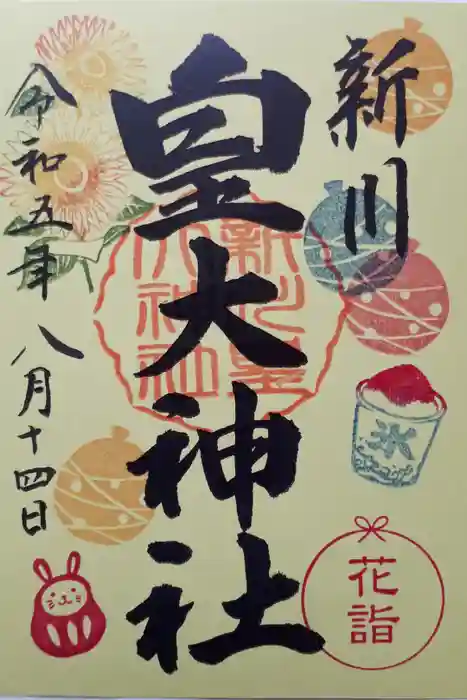 新川
皇大神社
令和五年 八月十四日
新川皇大神社
氷
花詣